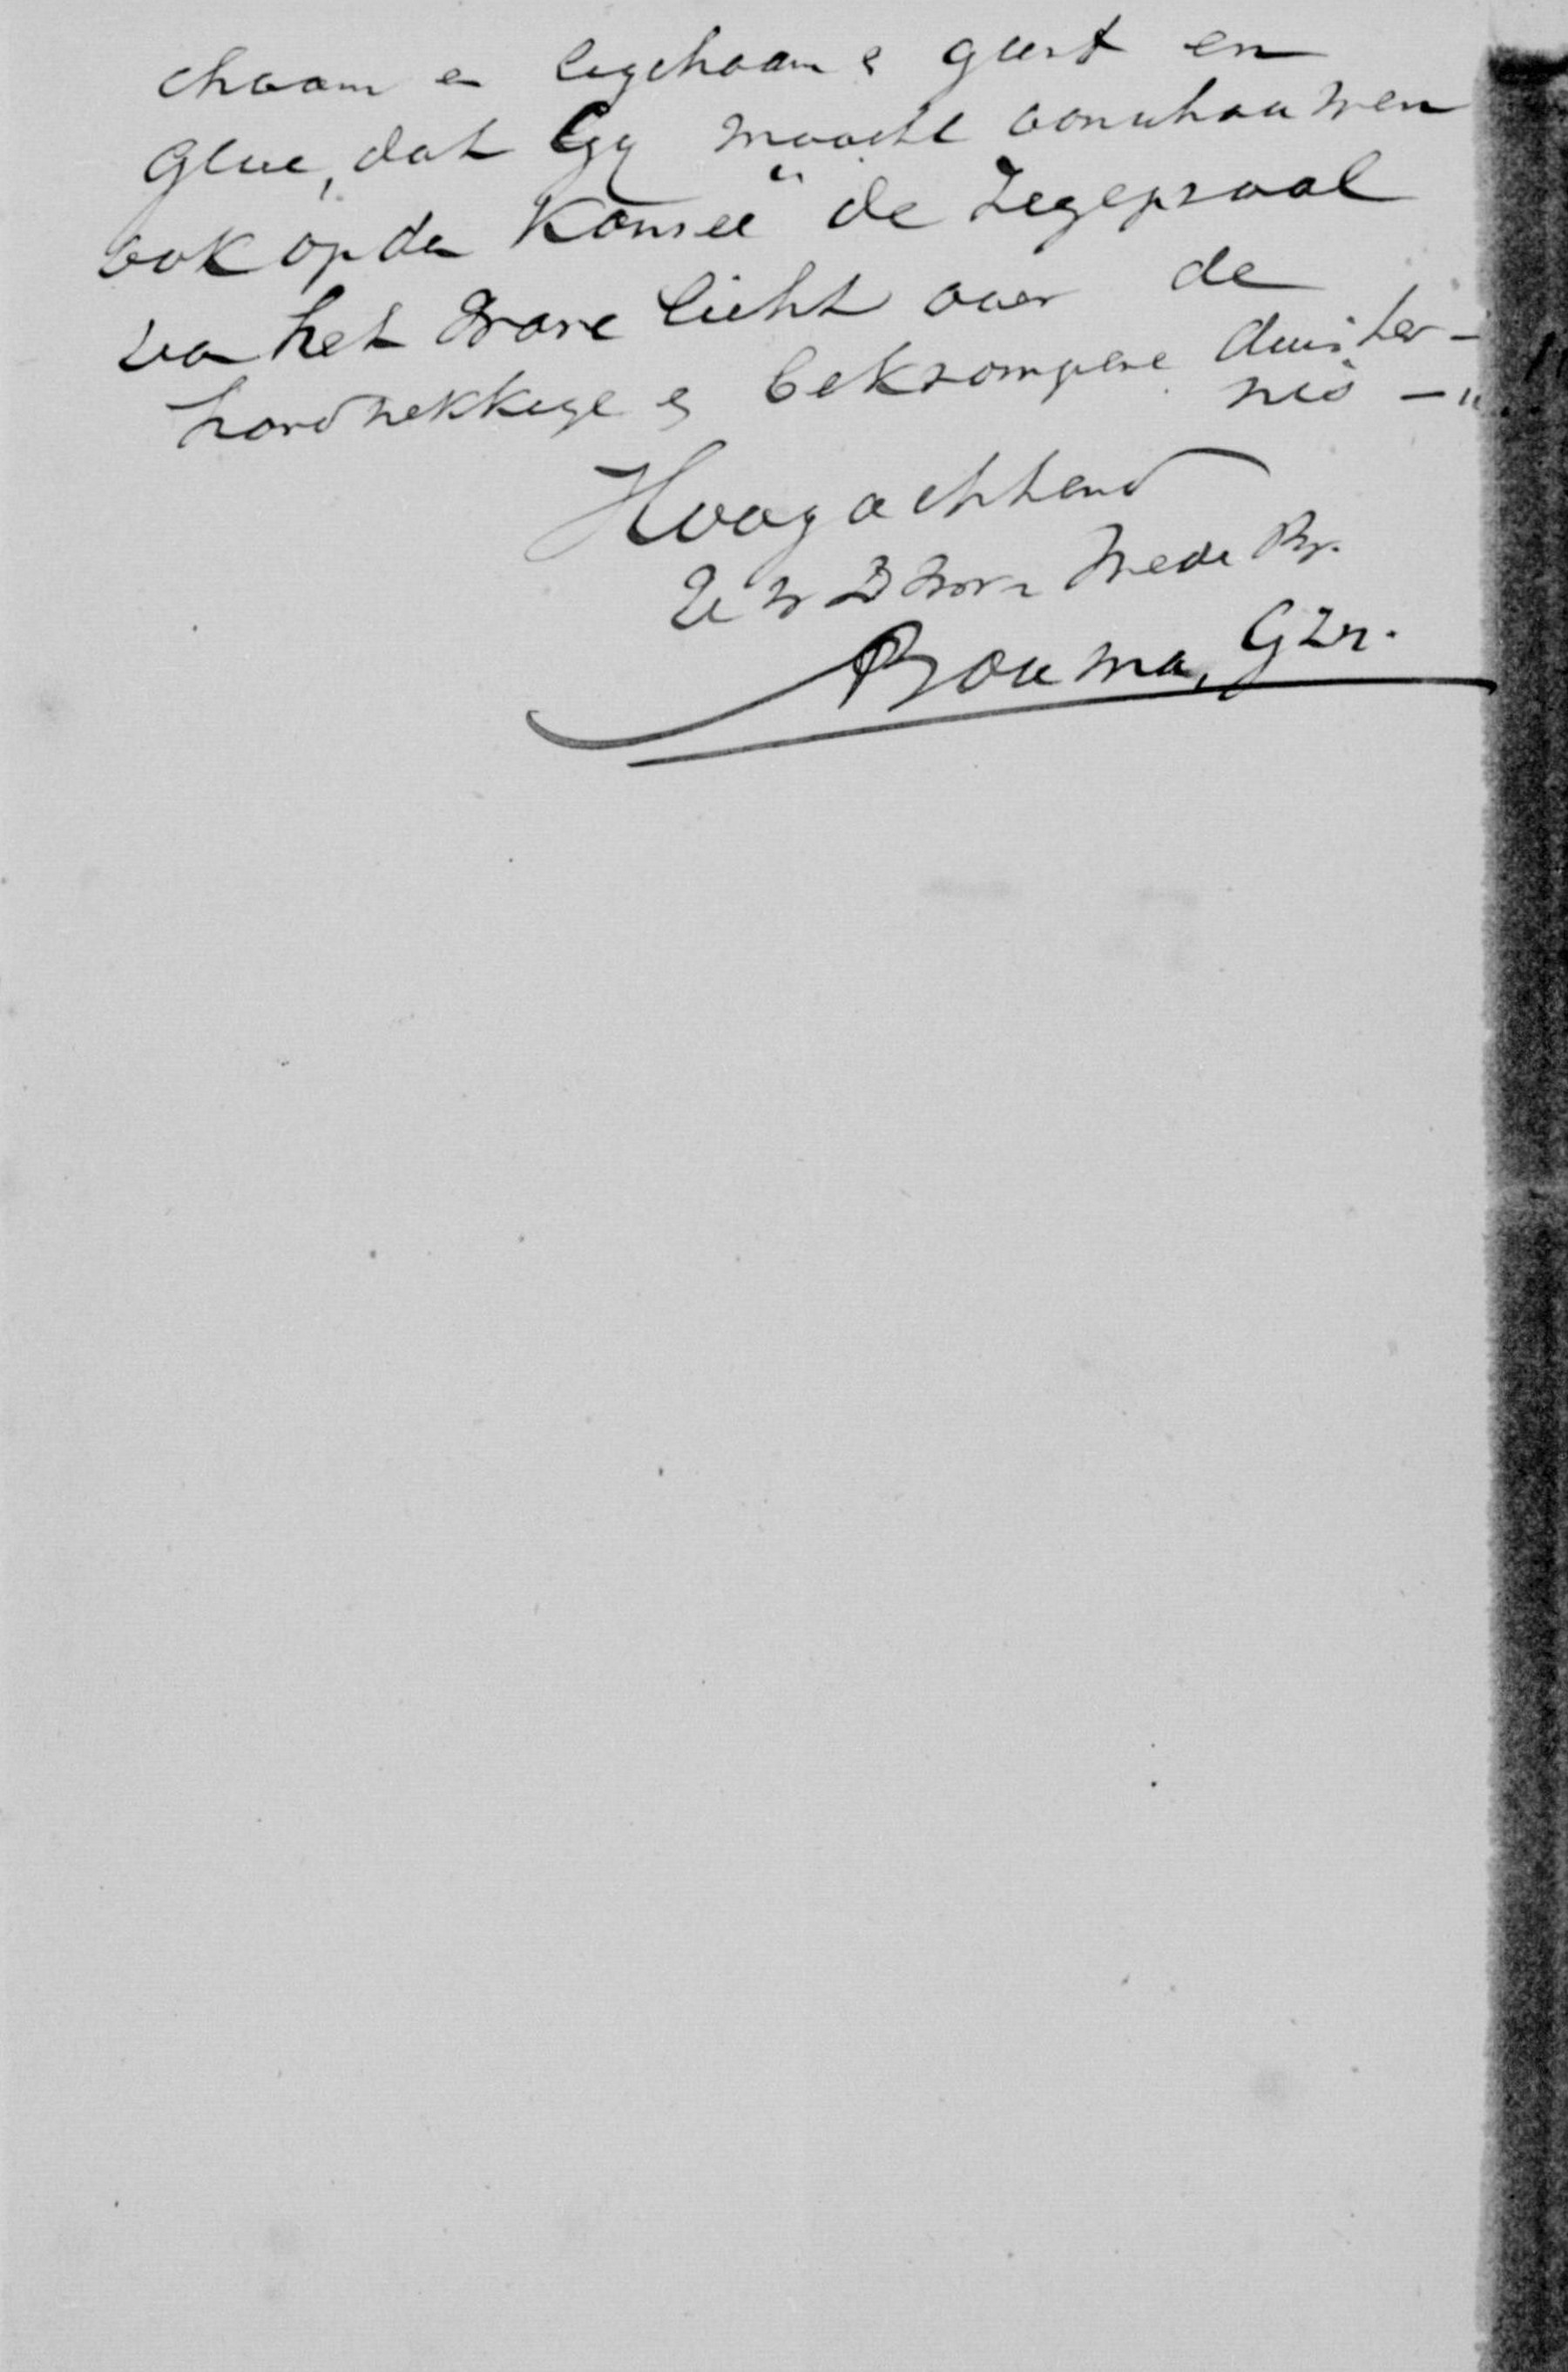 chaam en ligchaam & geest en
Glue, dat Gy moocht aanschouwen
ook op de "Kansel" de Zegepraal
van het Ware licht over de
hardnekkige & bekrompene duister-
nis —"
Hoogachtend
Uw Dw Mede Br.
Bouma, Gzn.